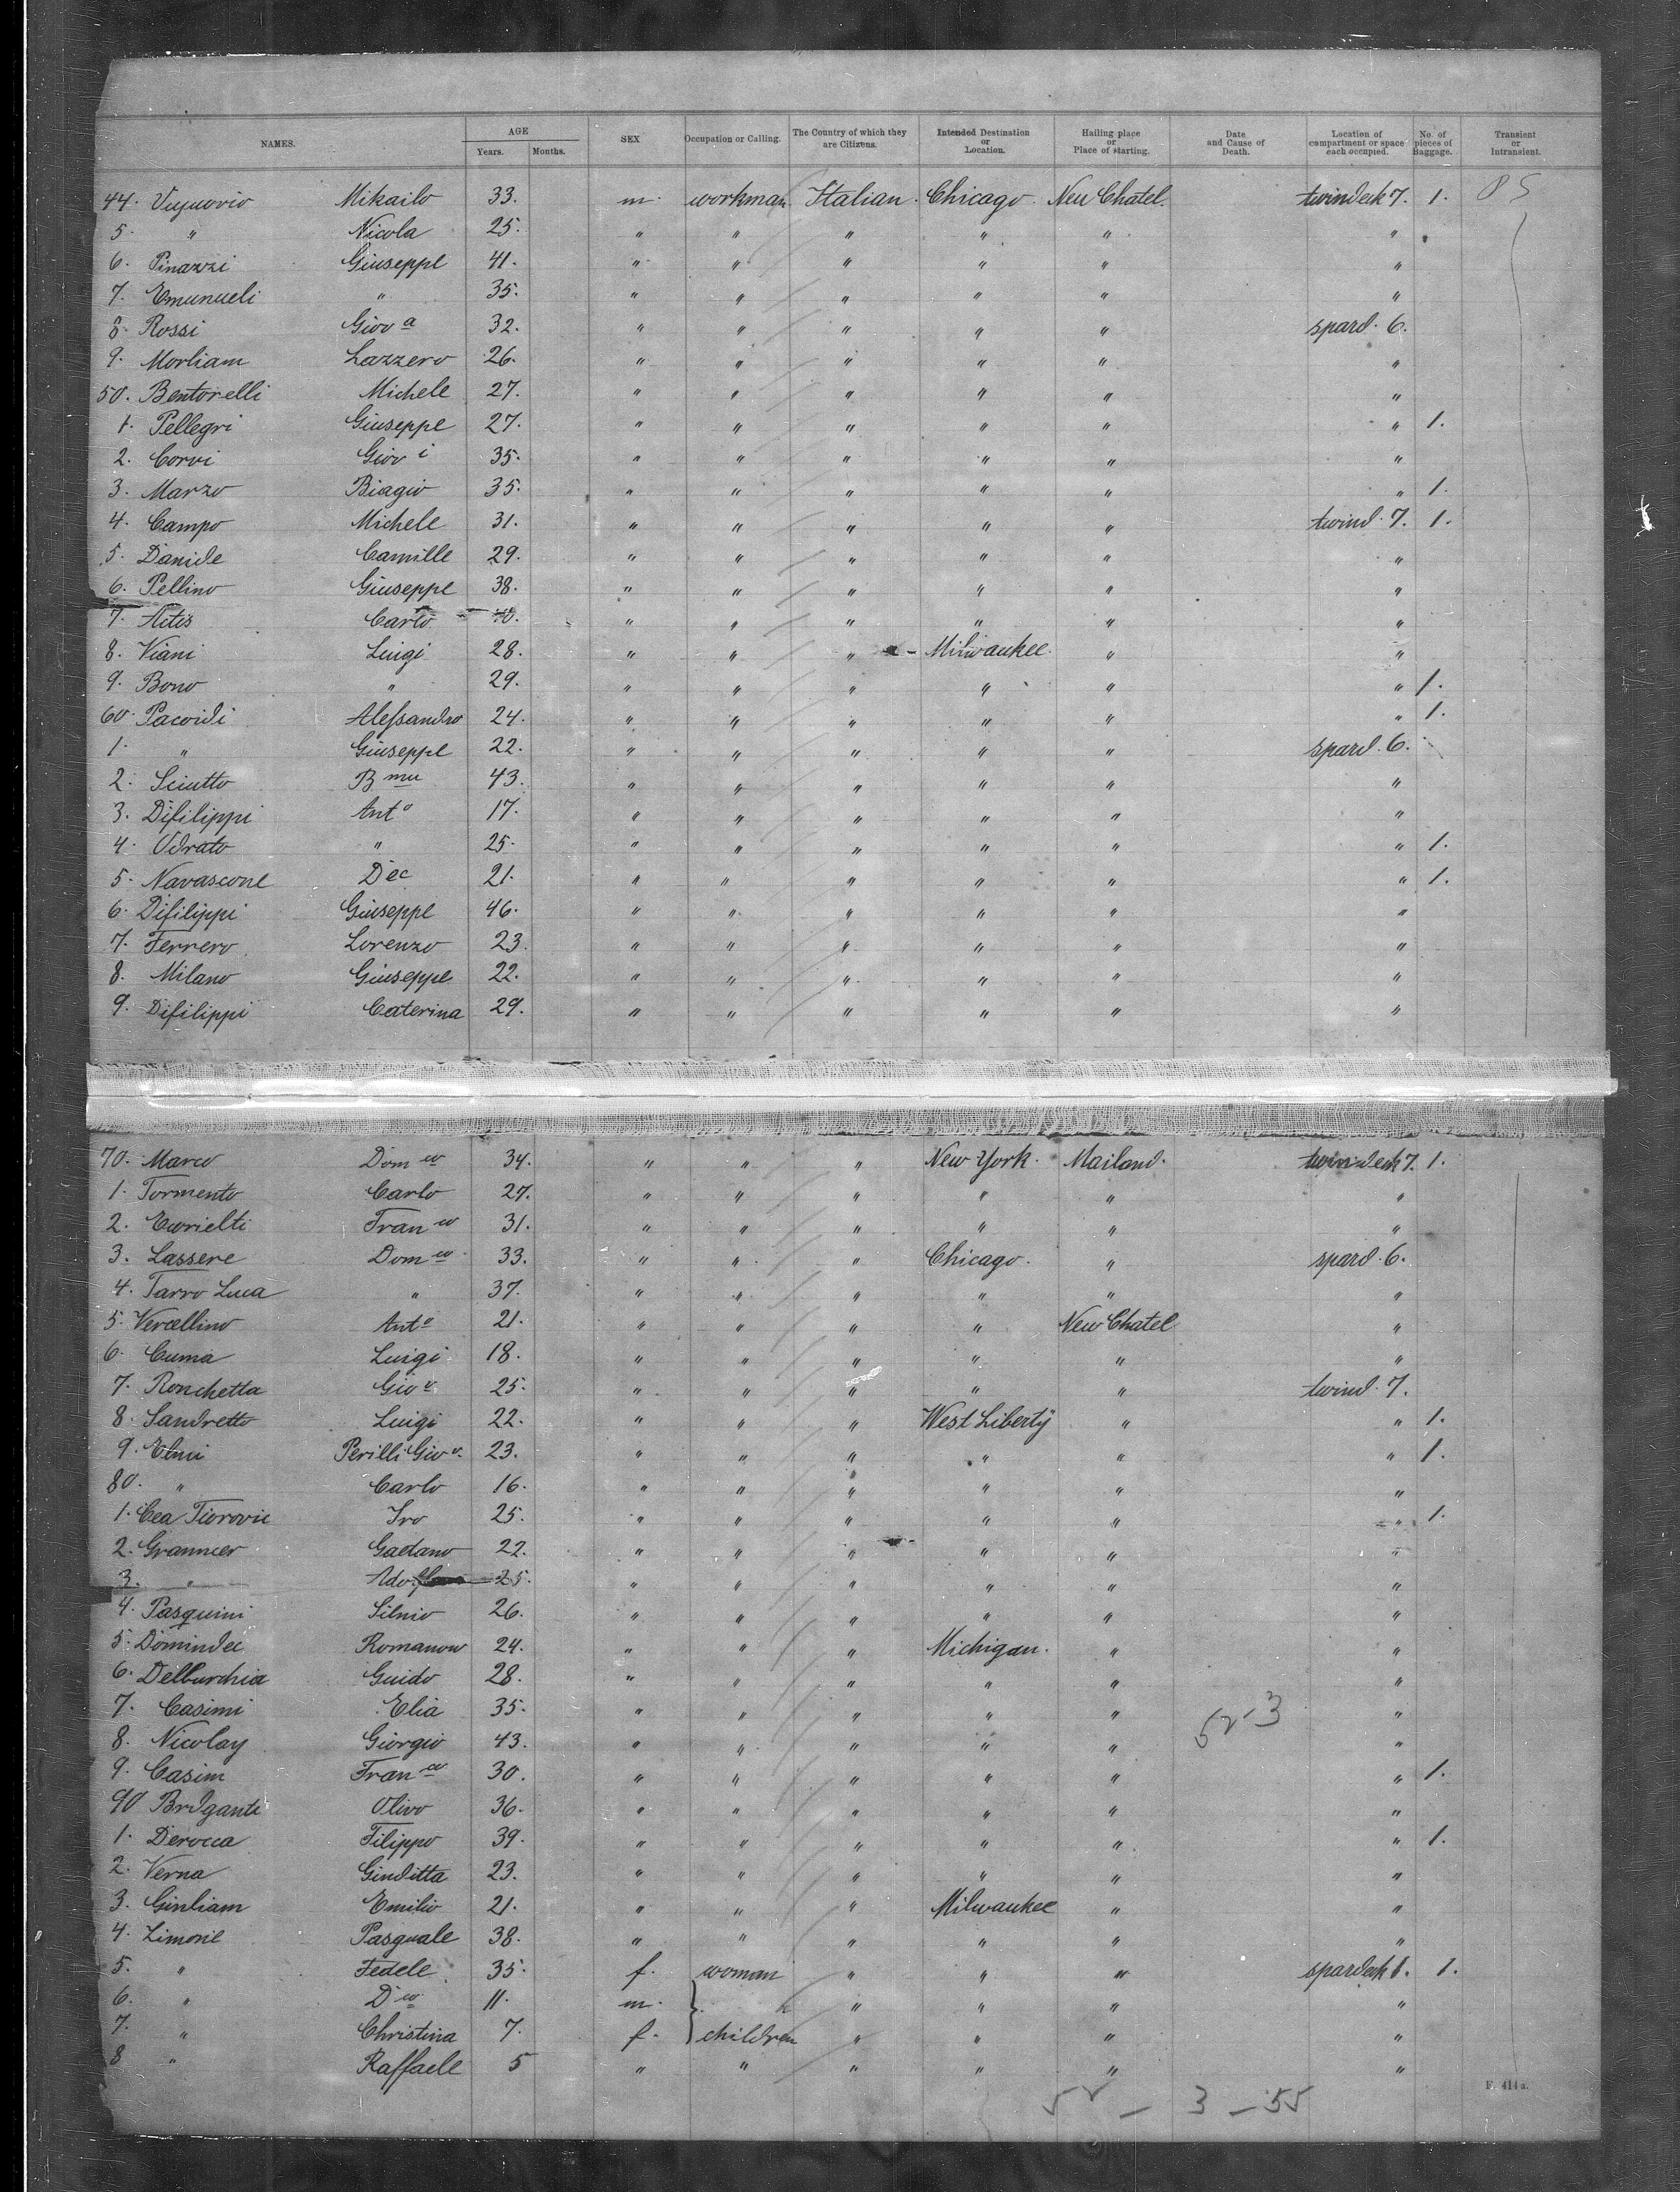 NAMES. AGE Years. Months. SEX Occupation or Calling. The Country of which they are Citizens. Intended Destination or Location. Hailing place or Place of starting. Date and Cause of Death. Location of compartment or space each occupied. No. of pieces of Baggage. Transient or Intransient.
44. Vujnovio Mikailo 33. m. workman Italian. Chicago. Neu Chatel. twindeck 7. 1.
5. " Nicola 25. " " " " " "
6. Pinazzi Giuseppe 41. " " " " " "
7. Emunueli " 35. " " " " " "
8. Rossi Giov a 32. " " " " " spard. 6.
9. Morliam Lazzero 26. " " " " " "
50. Bentorelli Michele 27. " " " " " "
1. Pellegri Giuseppe 27. " " " " " " 1.
2. Corvi Giov i 35. " " " " " "
3. Marzo Biagio 35. " " " " " " 1.
4. Campo Michele 31. " " " " " twind. 7. 1.
5. Daniele Camille 29. " " " " " "
6. Pellino Giuseppe 38. " " " " " "
7. Aitis Carlo " " " " " "
8. Viani Luigi 28. " " " Milwaukee. " "
9. Bono " 29. " " " " " " 1.
60. Pacoidi Alessandro 24. " " " " " " 1.
1. " Giuseppe 22. " " " " " spard. 6.
2. Sciutto B meu 43. " " " " " "
3. Difilippi Ant o 17. " " " " " "
4. Odrato " 25. " " " " " " 1.
5. Navascone Dec 21. " " " " " " 1.
6. Difilippi Giuseppe 46. " " " " " "
7. Ferrero Lorenzo 23. " " " " " "
8. Milano Giuseppe 22. " " " " " "
9. Difilippi Caterina 29. " " " " " "
70. Marco Dom co 34. " " " New York. Mailand. twindeck 7. 1.
1. Tormento Carlo 27. " " " " " "
2. Ewrielti Fran co 31. " " " " " "
3. Lassere Dom co 33. " " " Chicago. " spard. 6.
4. Tarro Luca " 37. " " " " " "
5. Vercellino Ant o 21. " " " " Neu Chatel "
6. Cuma Luigi 18. " " " " " "
7. Ronchetta Gio v. 25. " " " " " twind. 7.
8. Sandretto Luigi 22. " " " West Liberty " " 1.
9. Elmi Perilli Gio v. 23. " " " " " " 1.
80. " Carlo 16. " " " " " "
1. Cea Tiorovic Iro 25. " " " " " " 1.
2. Granncer Gaetano 22. " " " " " "
3. " Adolf 25. " " " " " "
4. Pasquini Silnio 26. " " " " " "
5. Domindec Romanow 24. " " " Michigan. " "
6. Delburchia Guido 28. " " " " " "
7. Casimi Elia 35. " " " " " "
8. Nicolay Giorgio 43. " " " " " "
9. Casim Fran co 30. " " " " " " 1.
90 Brdganti Olivo 36. " " " " " "
1. Derocca Filippo 39. " " " " " " 1.
2. Verna Ginditta 23. " " " " " "
3. Ginliam Emilio 21. " " " Milwaukee " "
4. Limone Pasquale 38. " " " " " "
5. " Fedele 35. f. woman " " " spardeck 1. 1.
6. " D co 11. m. " " " " "
7. " Christina 7. f. children " " " "
8 " Raffaele 5 " " " " " "
F. 414a.
52 - 3 - 55